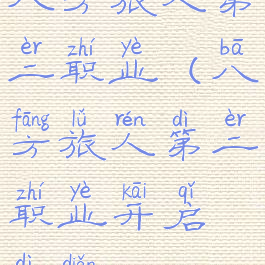 八方旅人第
èr zhí yè bā
二职业（八
fāng lǔ rén dì èr
方旅人第二
zhí yè kāi qǐ
职业开启
dì diǎn